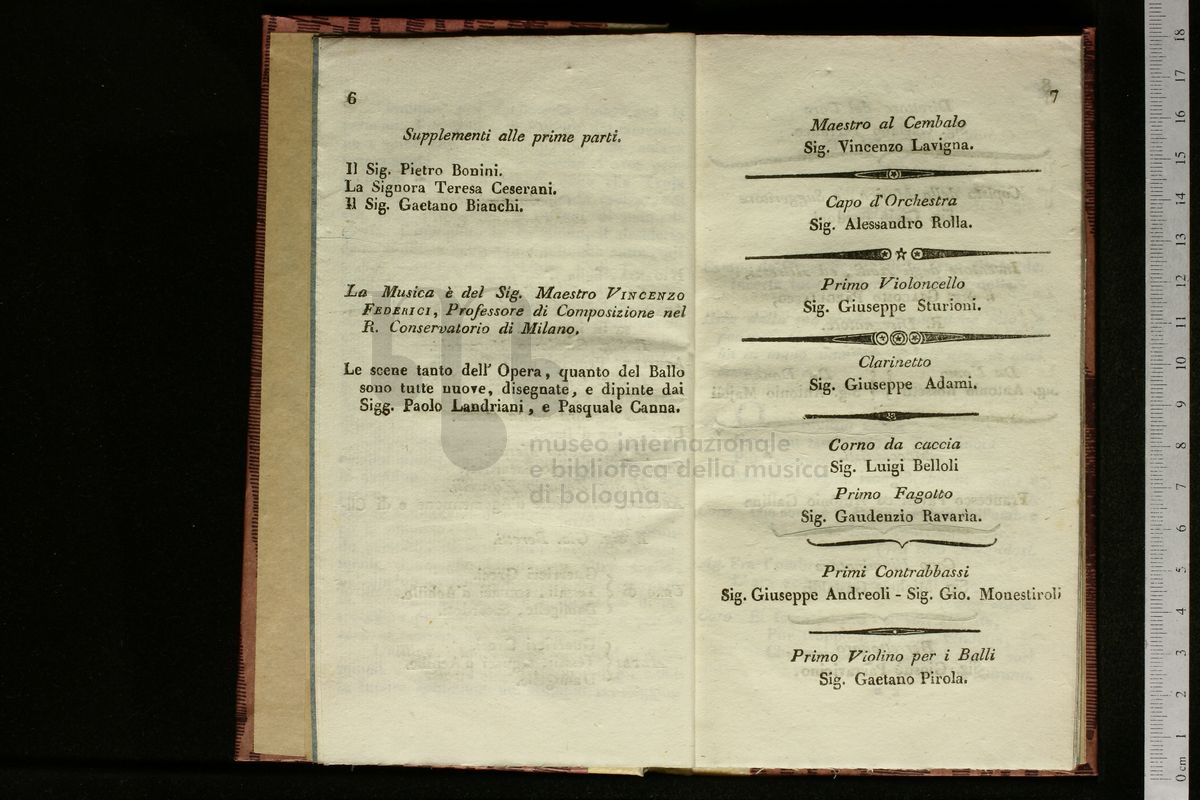 6
Supplementi alle prime parti.
Il Sig. Pietro Bonini.
La Signora Teresa Ceserani.
Il Sig. Gaetano Bianchi.
La Musica è del Sig. Maestro VINCENZO
FEDERICI, Professore di Composizione nel
R. Conservatorio di Milano.
Le scene tanto dell' Opera, quanto del Ballo
sono tutte nuove, disegnate, e dipinte dai
Sigg. Paolo Landriani, e Pasquale Canna.
7
Maestro al Cembalo
Sig. Vincenzo Lavigna.
Capo d'Orchestra
Sig. Alessandro Rolla.
Primo Violoncello
Sig. Giuseppe Sturioni.
Clarinetto
Sig. Giuseppe Adami.
Corno da caccia
Sig. Luigi Belloli
Primo Fagotto
Sig. Gaudenzio Ravarìa.
Primi Contrabbassi
Sig. Giuseppe Andreoli - Sig. Gio. Monestiroli
Primo Violino per i Balli
Sig. Gaetano Pirola.
museo internazionale
e biblioteca della musica
di bologna
0 cm 1 2 3 4 5 6 7 8 9 10 11 12 13 14 15 16 17 18